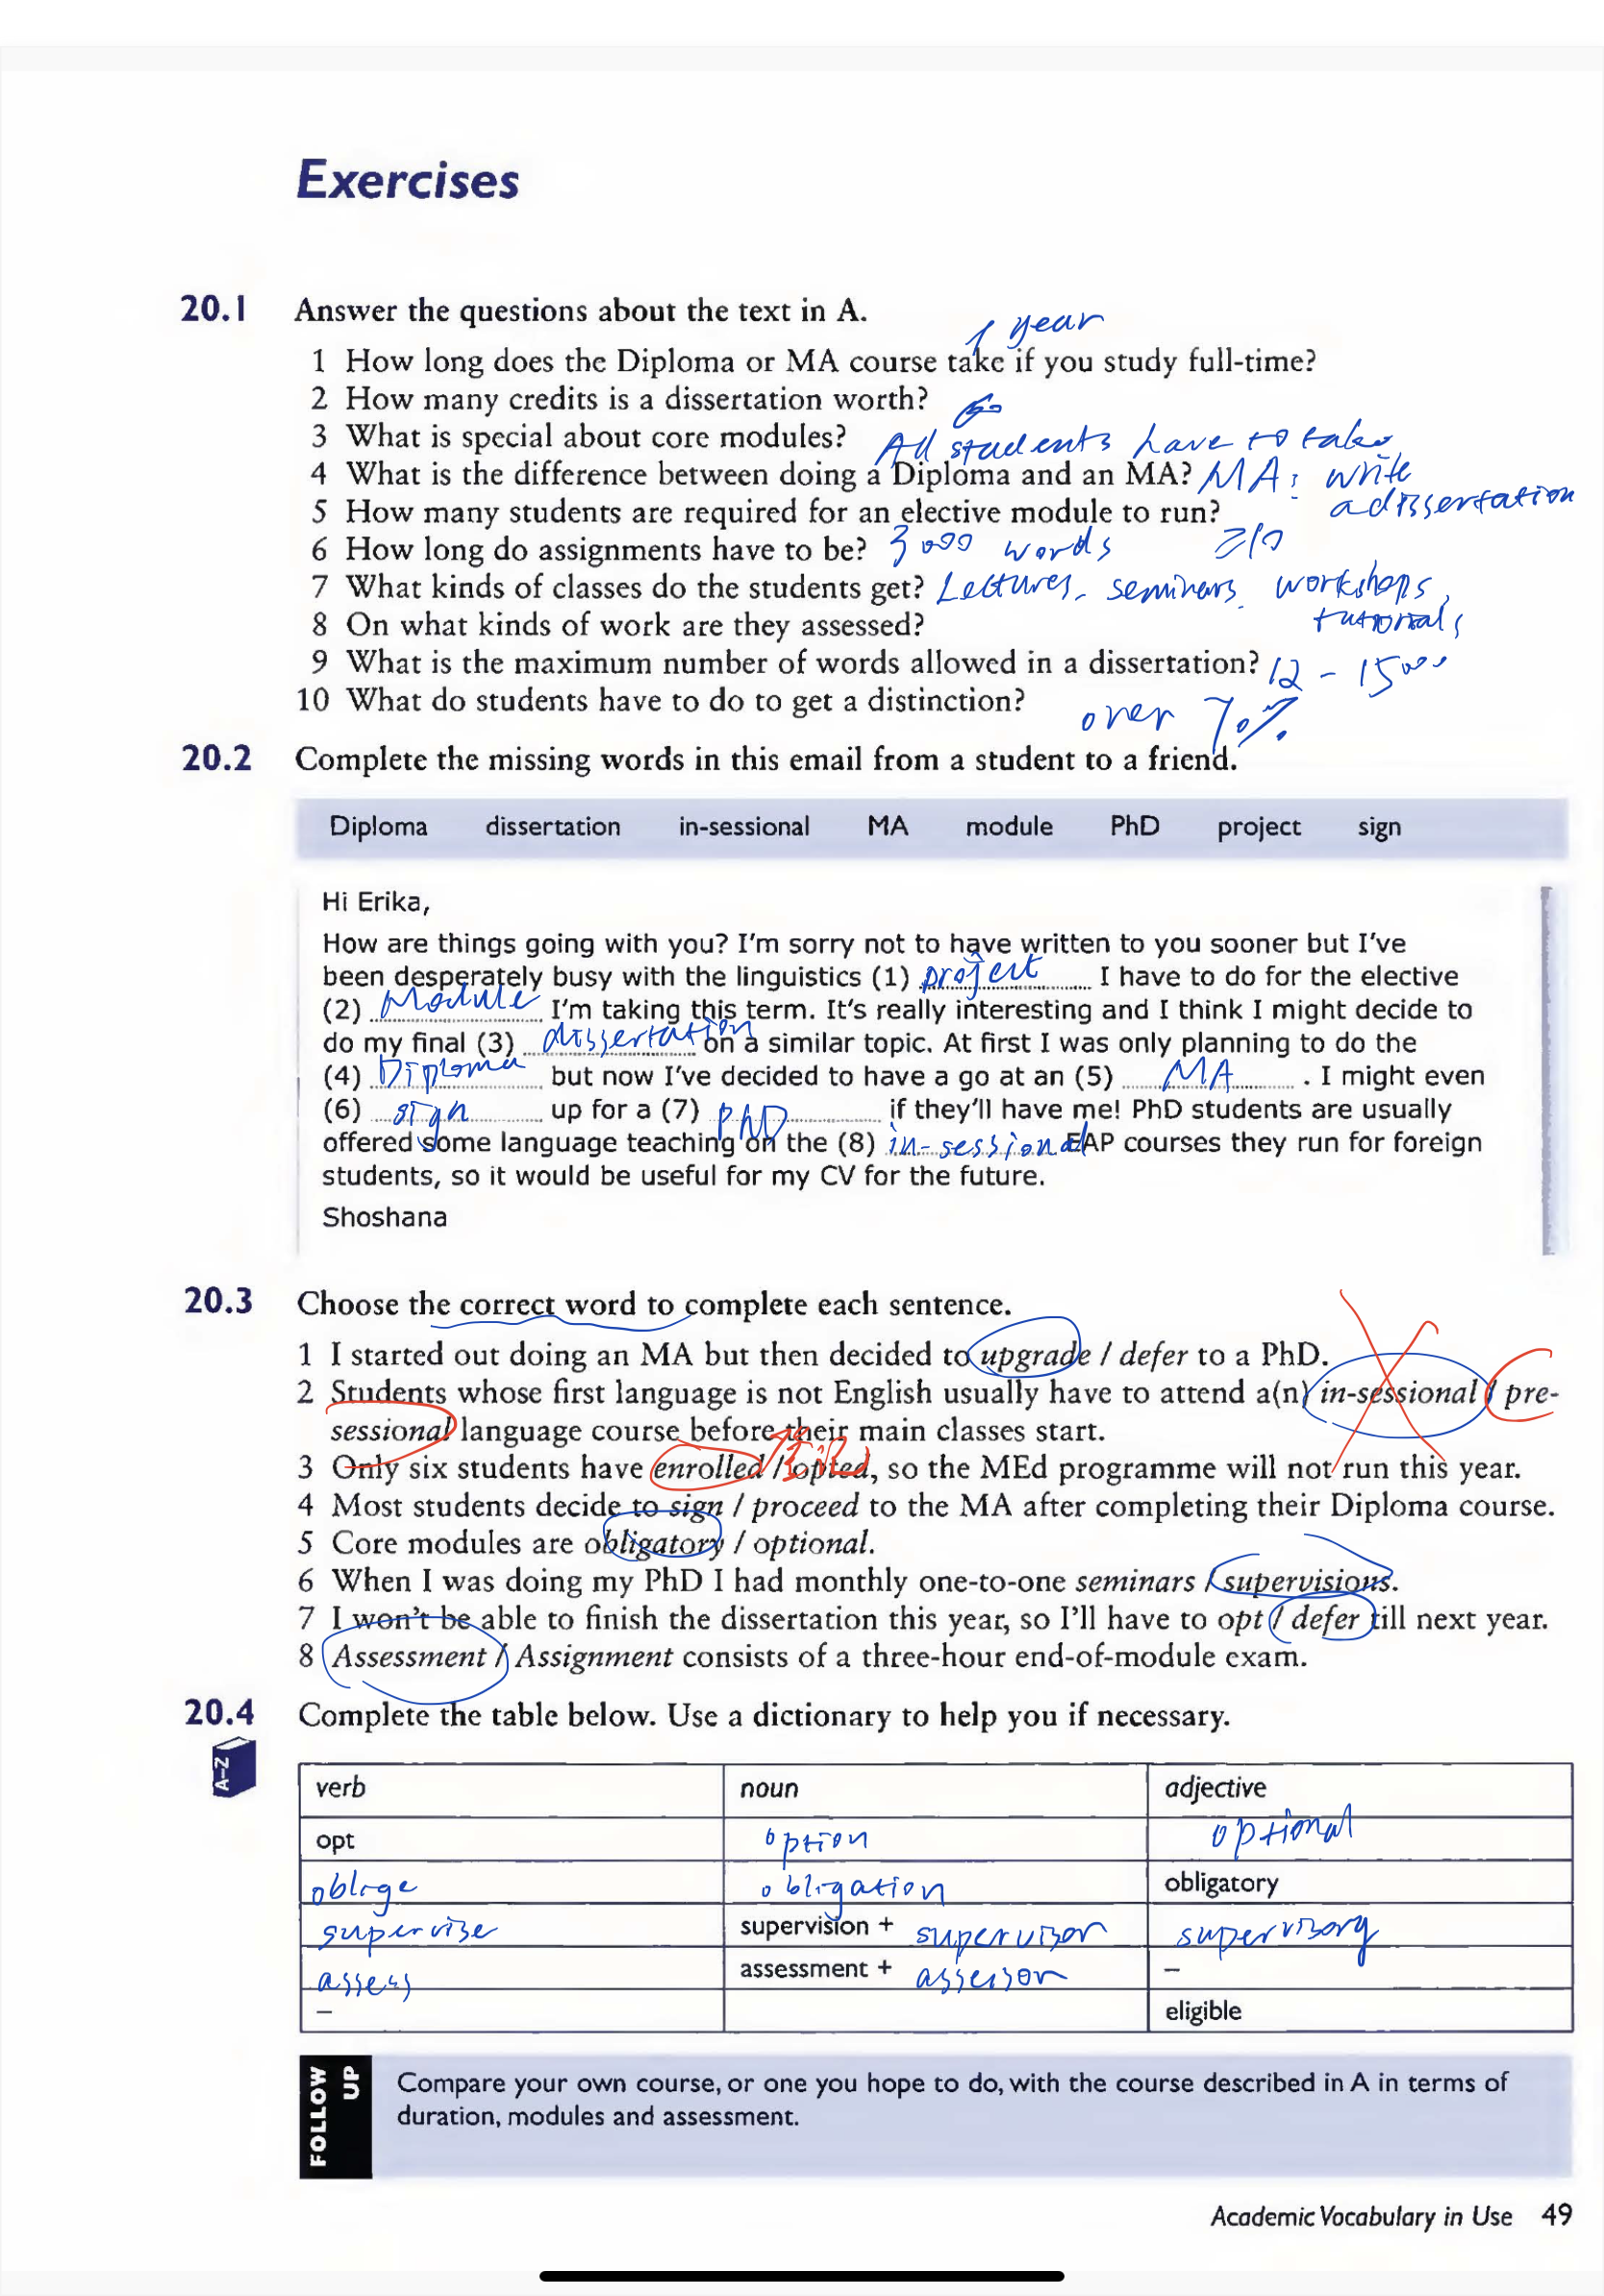 Exercises
20.1 Answer the questions about the text in A.
1 year
1 How long does the Diploma or MA course take if you study full-time?
2 How many credits is a dissertation worth?
3 What is special about core modules? All students have to take
4 What is the difference between doing a Diploma and an MA? MA: write
a dissertation
5 How many students are required for an elective module to run?
6 How long do assignments have to be? 3000 words
7 What kinds of classes do the students get? Lectures, seminars, workshops,
tutorials
8 On what kinds of work are they assessed?
9 What is the maximum number of words allowed in a dissertation? 12-15000
10 What do students have to do to get a distinction? over 70%
20.2 Complete the missing words in this email from a student to a friend.
Diploma dissertation in-sessional MA module PhD project sign
Hi Erika,
How are things going with you? I'm sorry not to have written to you sooner but I've
been desperately busy with the linguistics (1) project I have to do for the elective
(2) Module I'm taking this term. It's really interesting and I think I might decide to
do my final (3) dissertation on a similar topic. At first I was only planning to do the
(4) Diploma but now I've decided to have a go at an (5) MA. I might even
(6) sign up for a (7) PhD if they'll have me! PhD students are usually
offered some language teaching on the (8) in-sessional EAP courses they run for foreign
students, so it would be useful for my CV for the future.
Shoshana
20.3 Choose the correct word to complete each sentence.
1 I started out doing an MA but then decided to upgrade / defer to a PhD.
2 Students whose first language is not English usually have to attend a(n) in-sessional / pre-
sessional language course before their main classes start.
3 Only six students have enrolled / opted, so the MEd programme will not run this year.
4 Most students decide to sign / proceed to the MA after completing their Diploma course.
5 Core modules are obligatory / optional.
6 When I was doing my PhD I had monthly one-to-one seminars / supervisions.
7 I won't be able to finish the dissertation this year, so I'll have to opt / defer till next year.
8 Assessment / Assignment consists of a three-hour end-of-module exam.
20.4 Complete the table below. Use a dictionary to help you if necessary.
A-Z
verb noun adjective
opt option optional
oblige obligation obligatory
supervise supervision + supervisor supervisory
assess assessment + assessor –
– eligible
FOLLOW UP
Compare your own course, or one you hope to do, with the course described in A in terms of
duration, modules and assessment.
Academic Vocabulary in Use 49